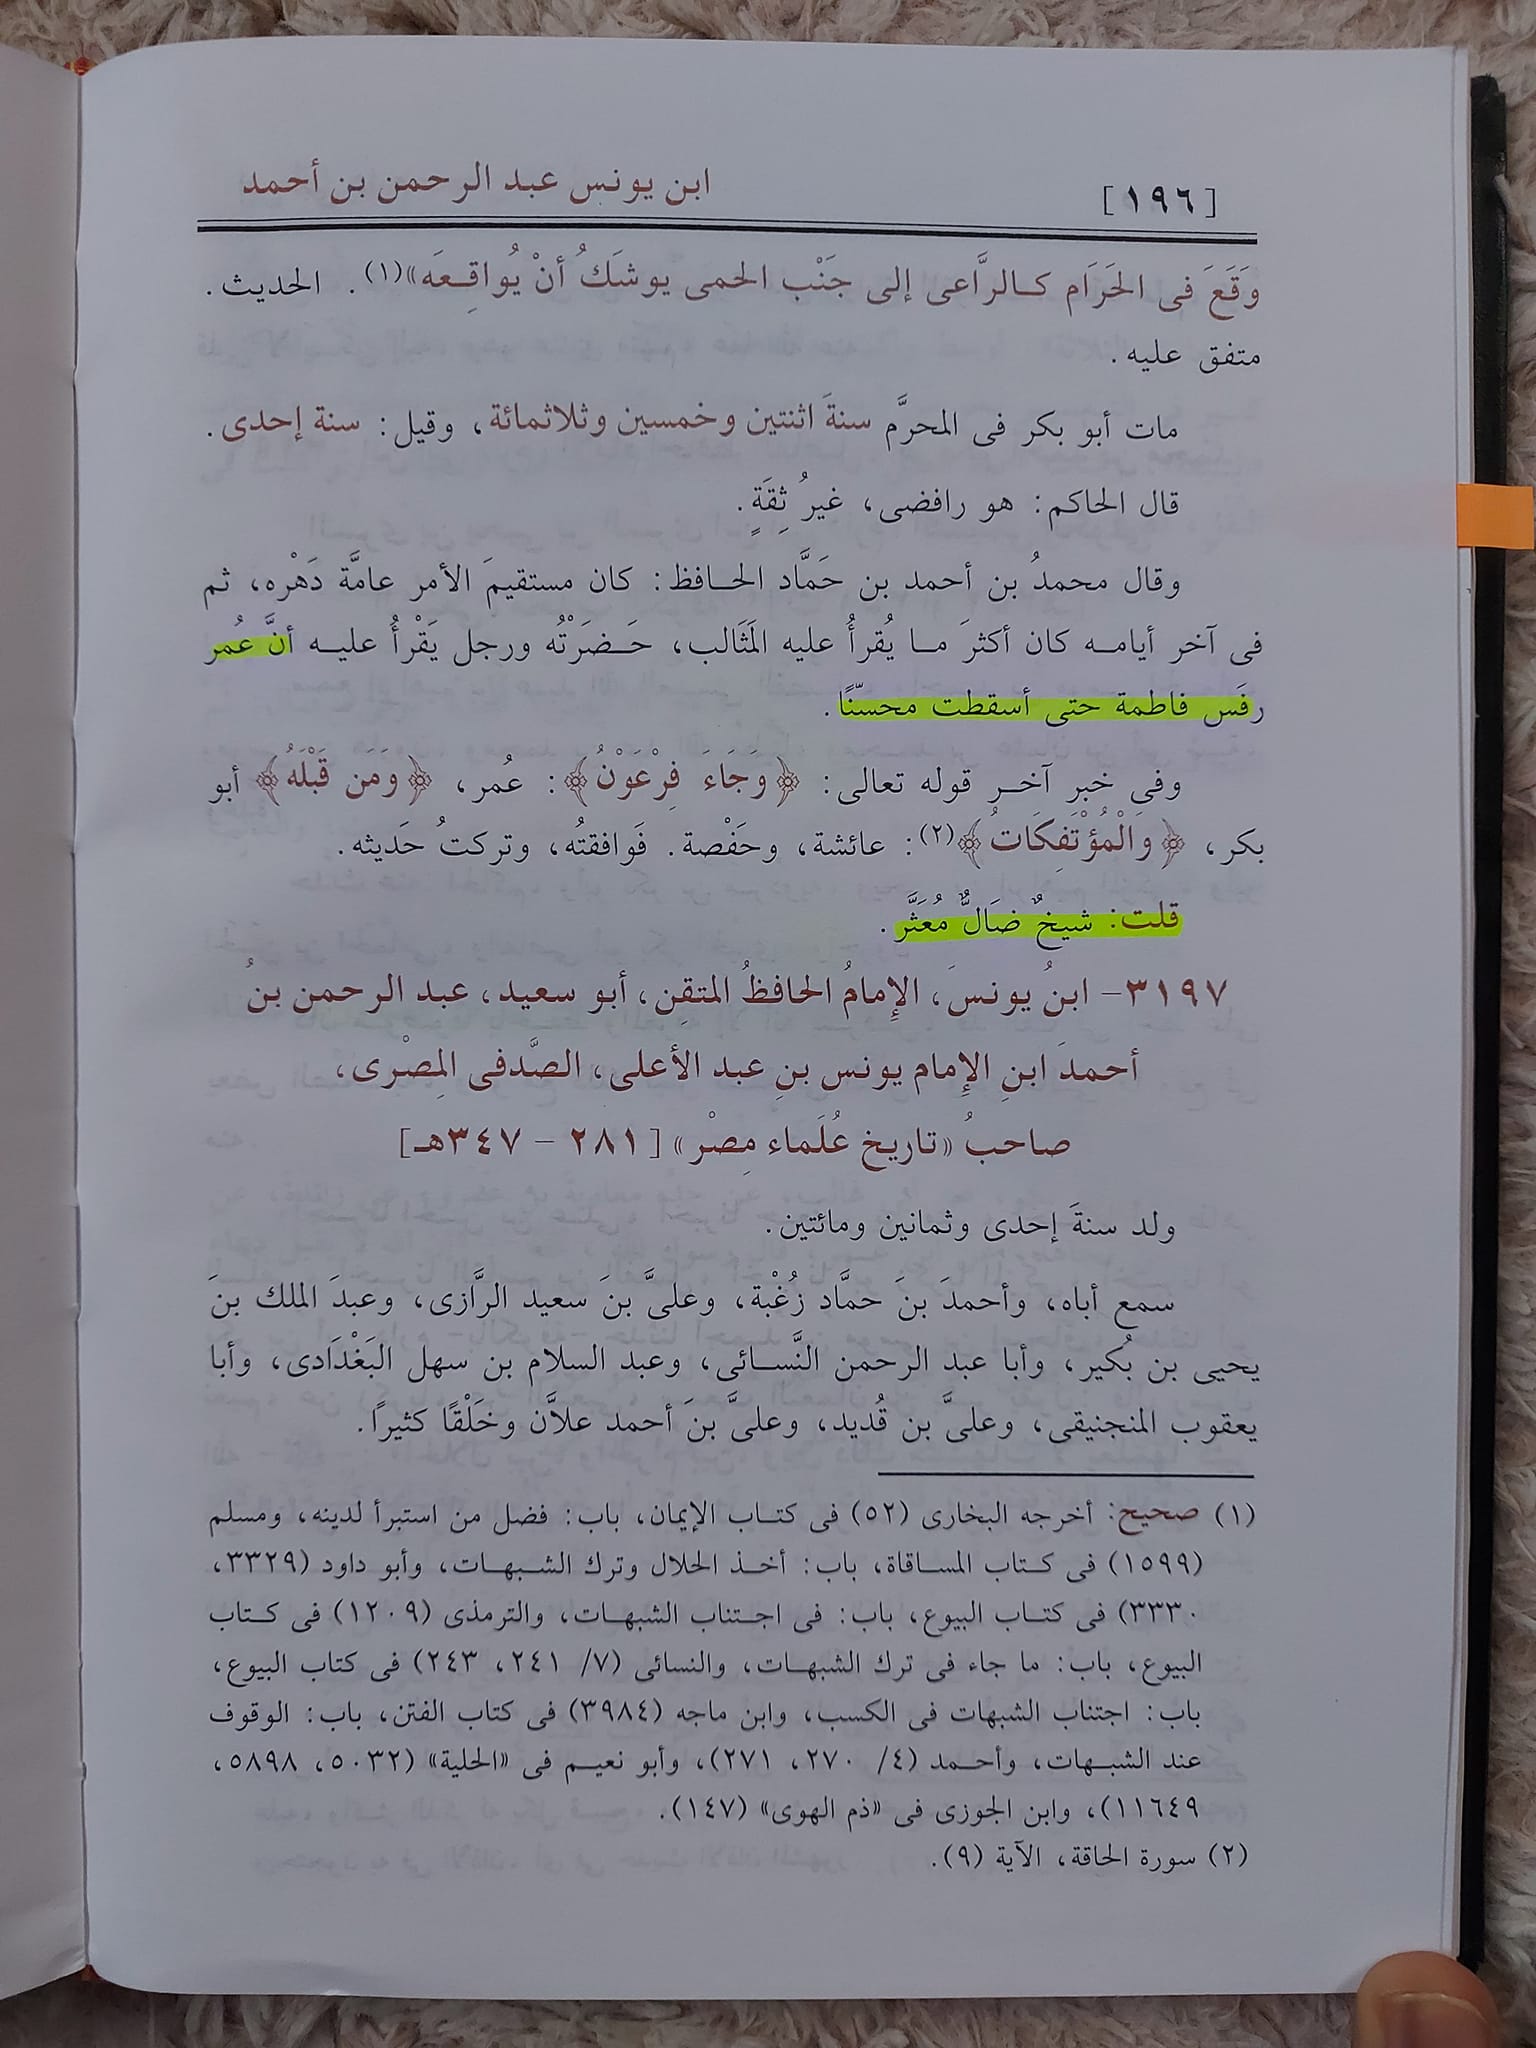 [١٩٦] ابن يونس عبد الرحمن بن أحمد
وَقَعَ فى الحَرَام كـالرَّاعى إلى جَنْب الحمى يوشَكُ أنْ يُواقِـعَه»(١). الحديث.
متفق عليه.
مات أبو بكر فى المحرَّم سنةَ اثنتين وخمسين وثلاثمائة، وقيل: سنة إحدى.
قال الحاكم: هو رافضى، غيرُ ثِقَةٍ.
وقال محمدُ بن أحمد بن حَمَّاد الحـافظ: كان مستقيمَ الأمر عامَّة دَهْره، ثم
فى آخر أيامـه كان أكثرَ مـا يُقرأُ عليه المَثَالب، حَـضَرْتُه ورجل يَقْرأُ عليـه أنَّ عُمر
رفَس فاطمة حتى أسقطت محسّنًا.
وفى خبر آخـر قوله تعالى: ﴿وَجَاءَ فِرْعَوْنُ﴾: عُمر، ﴿وَمَن قَبْلَهُ﴾ أبو
بكر، ﴿وَالْمُؤْتَفِكَاتُ﴾(٢): عائشة، وحَفْصة. فَوافقتُه، وتركتُ حَديثه.
قلت: شيخٌ ضَالٌّ مُعَثَّر.
٣١٩٧- ابنُ يونسَ، الإِمامُ الحافظُ المتقِن، أبو سعيد، عبد الرحمن بنُ
أحمدَ ابنِ الإِمام يونس بنِ عبد الأعلى، الصَّدفى المِصْرى،
صاحبُ «تاريخ عُلَماء مِصْر» [٢٨١ - ٣٤٧هـ]
ولد سنةَ إحدى وثمانين ومائتين.
سمع أباه، وأحمدَ بنَ حمَّاد زُغْبة، وعلىَّ بنَ سعيد الرَّازى، وعبدَ الملك بنَ
يحيى بن بُكير، وأبا عبد الرحمن النَّسـائى، وعبد السلام بن سهل البَغْدَادى، وأبا
يعقوب المنجنيقى، وعلىَّ بن قُديد، وعلىَّ بنَ أحمد علاَّن وخَلْقًا كثيرًا.
(١) صحيح: أخرجه البخارى (٥٢) فى كتـاب الإيمان، باب: فضل من استبرأ لدينه، ومسلم
(١٥٩٩) فى كتاب المساقاة، باب: أخذ الحلال وترك الشـبهـات، وأبو داود (٣٣٢٩،
٣٣٣٠) فى كتـاب البيوع، باب: فى اجـتناب الشبهـات، والترمذى (١٢٠٩) فى كـتاب
البيوع، باب: ما جاء فى ترك الشبهـات، والنسائى (٧/ ٢٤١، ٢٤٣) فى كتاب البيوع،
باب: اجتناب الشبهات فى الكسب، وابن ماجه (٣٩٨٤) فى كتاب الفتن، باب: الوقوف
عند الشبـهات، وأحـمد (٤/ ٢٧٠، ٢٧١)، وأبو نعيـم فى «الحلية» (٥٠٣٢، ٥٨٩٨،
١١٦٤٩)، وابن الجوزى فى «ذم الهوى» (١٤٧).
(٢) سورة الحاقة، الآية (٩).